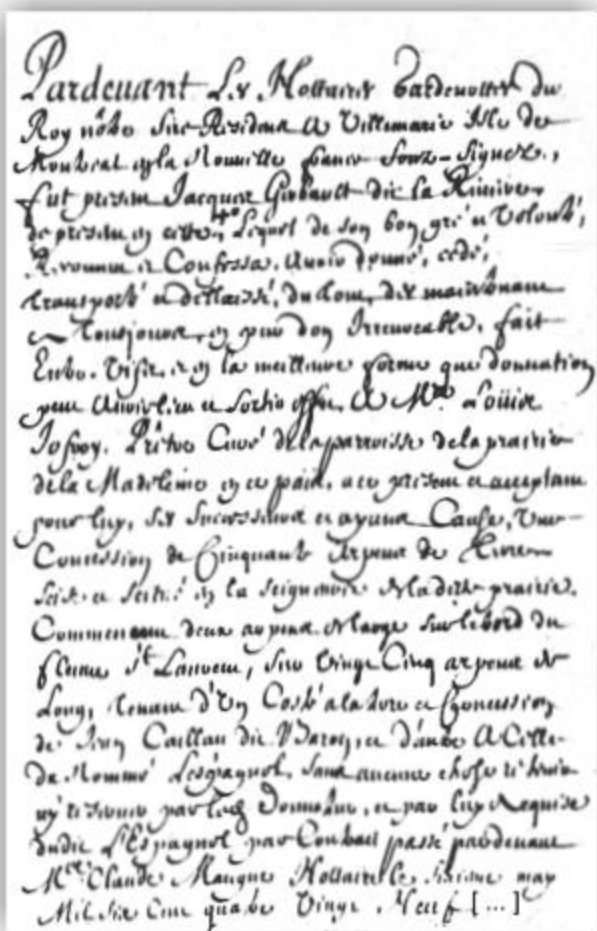 Pardeuant Les Nottaires Gardenottes du
Roy nõtre Sire Residens A Villemarie Isle de
Montreal en la Nouuelle france Sous-Signez,
fut presem Jacques Gibault dit la
de presem en cette Lequel de son bon gré et Volonté,
et Confessa, Auoir donné, cedé,
transporté et dellaissé, du tout, dez maintenam
et Tousjours, en pur don Irreuocable, fait
Entre. Vifs, et en la meilleure forme que donnation
peut Auoir lieu et Sortir effet, A Mre Loüis
Prêtre Curé de la parroisse de la prairie
de la Madeleine en ce païs, a ce presem et acceptam
pour luy, ses Successeurs et ayans Cause, Vne
Concession de Cinquante Arpens de Terre
Seize et Scitué en la Seigneurie de la ditte prairie.
Commencam deux arpens de large Sur le bord du
fleuue St Laurem, Sur Vingt Cinq arpens de
Long, tenam d'Vn Costé a la terre et Concession
de Jean Caillau dit Baron, et d'autre A Celle
du Nommé Lespagnol, Sans aucune chose
ny reseruer par led Donnateur, et par luy Acquise
dudit L'Espagnol par Contract passé pardeuant
Mre Claude Maugue Nottaire le may
Mil Six Cent quatre Vingt Neuf [...]